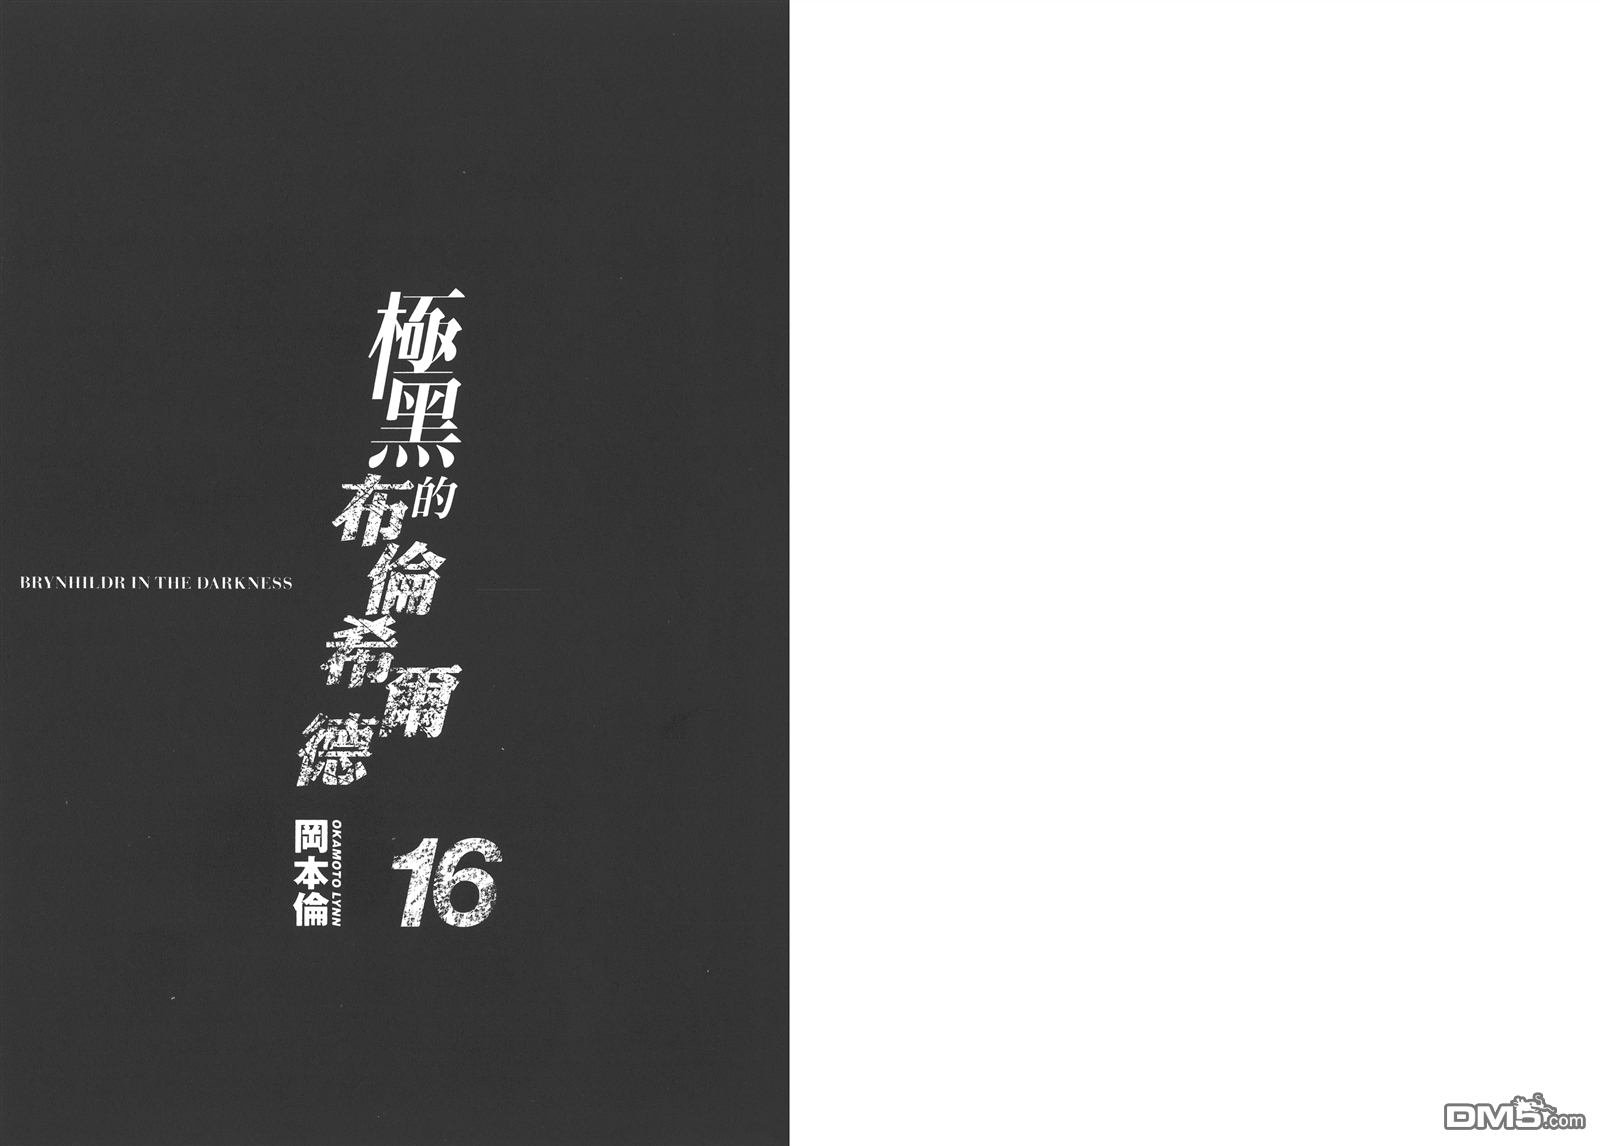 極黑的
布倫希爾德
BRYNHILDR IN THE DARKNESS
岡本倫
OKAMOTO LYNN
16
DM5.com